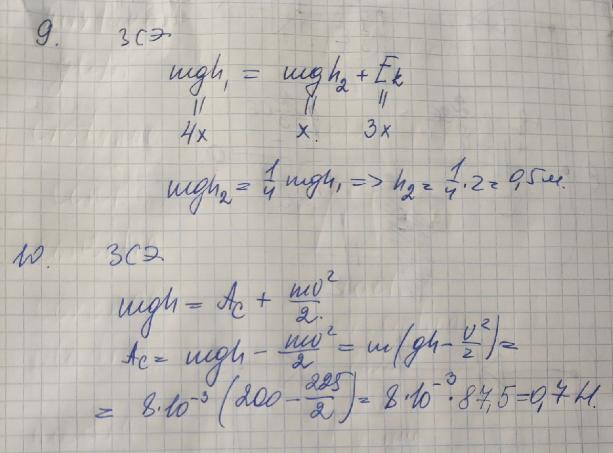 9. ЗСЭ
mgh₁ = mgh₂ + Eк
॥ ॥ ॥
4x x. 3x
mgh₂ = 1/4 mgh₁ => h₂ = 1/4 · 2 = 0,5 м.
10. ЗСЭ
mgh = Ac + mv²/2.
Ac = mgh - mv²/2 = m(gh - v²/2) =
= 8·10⁻³ (200 - 225/2) = 8·10⁻³ · 87,5 = 0,7 Н.